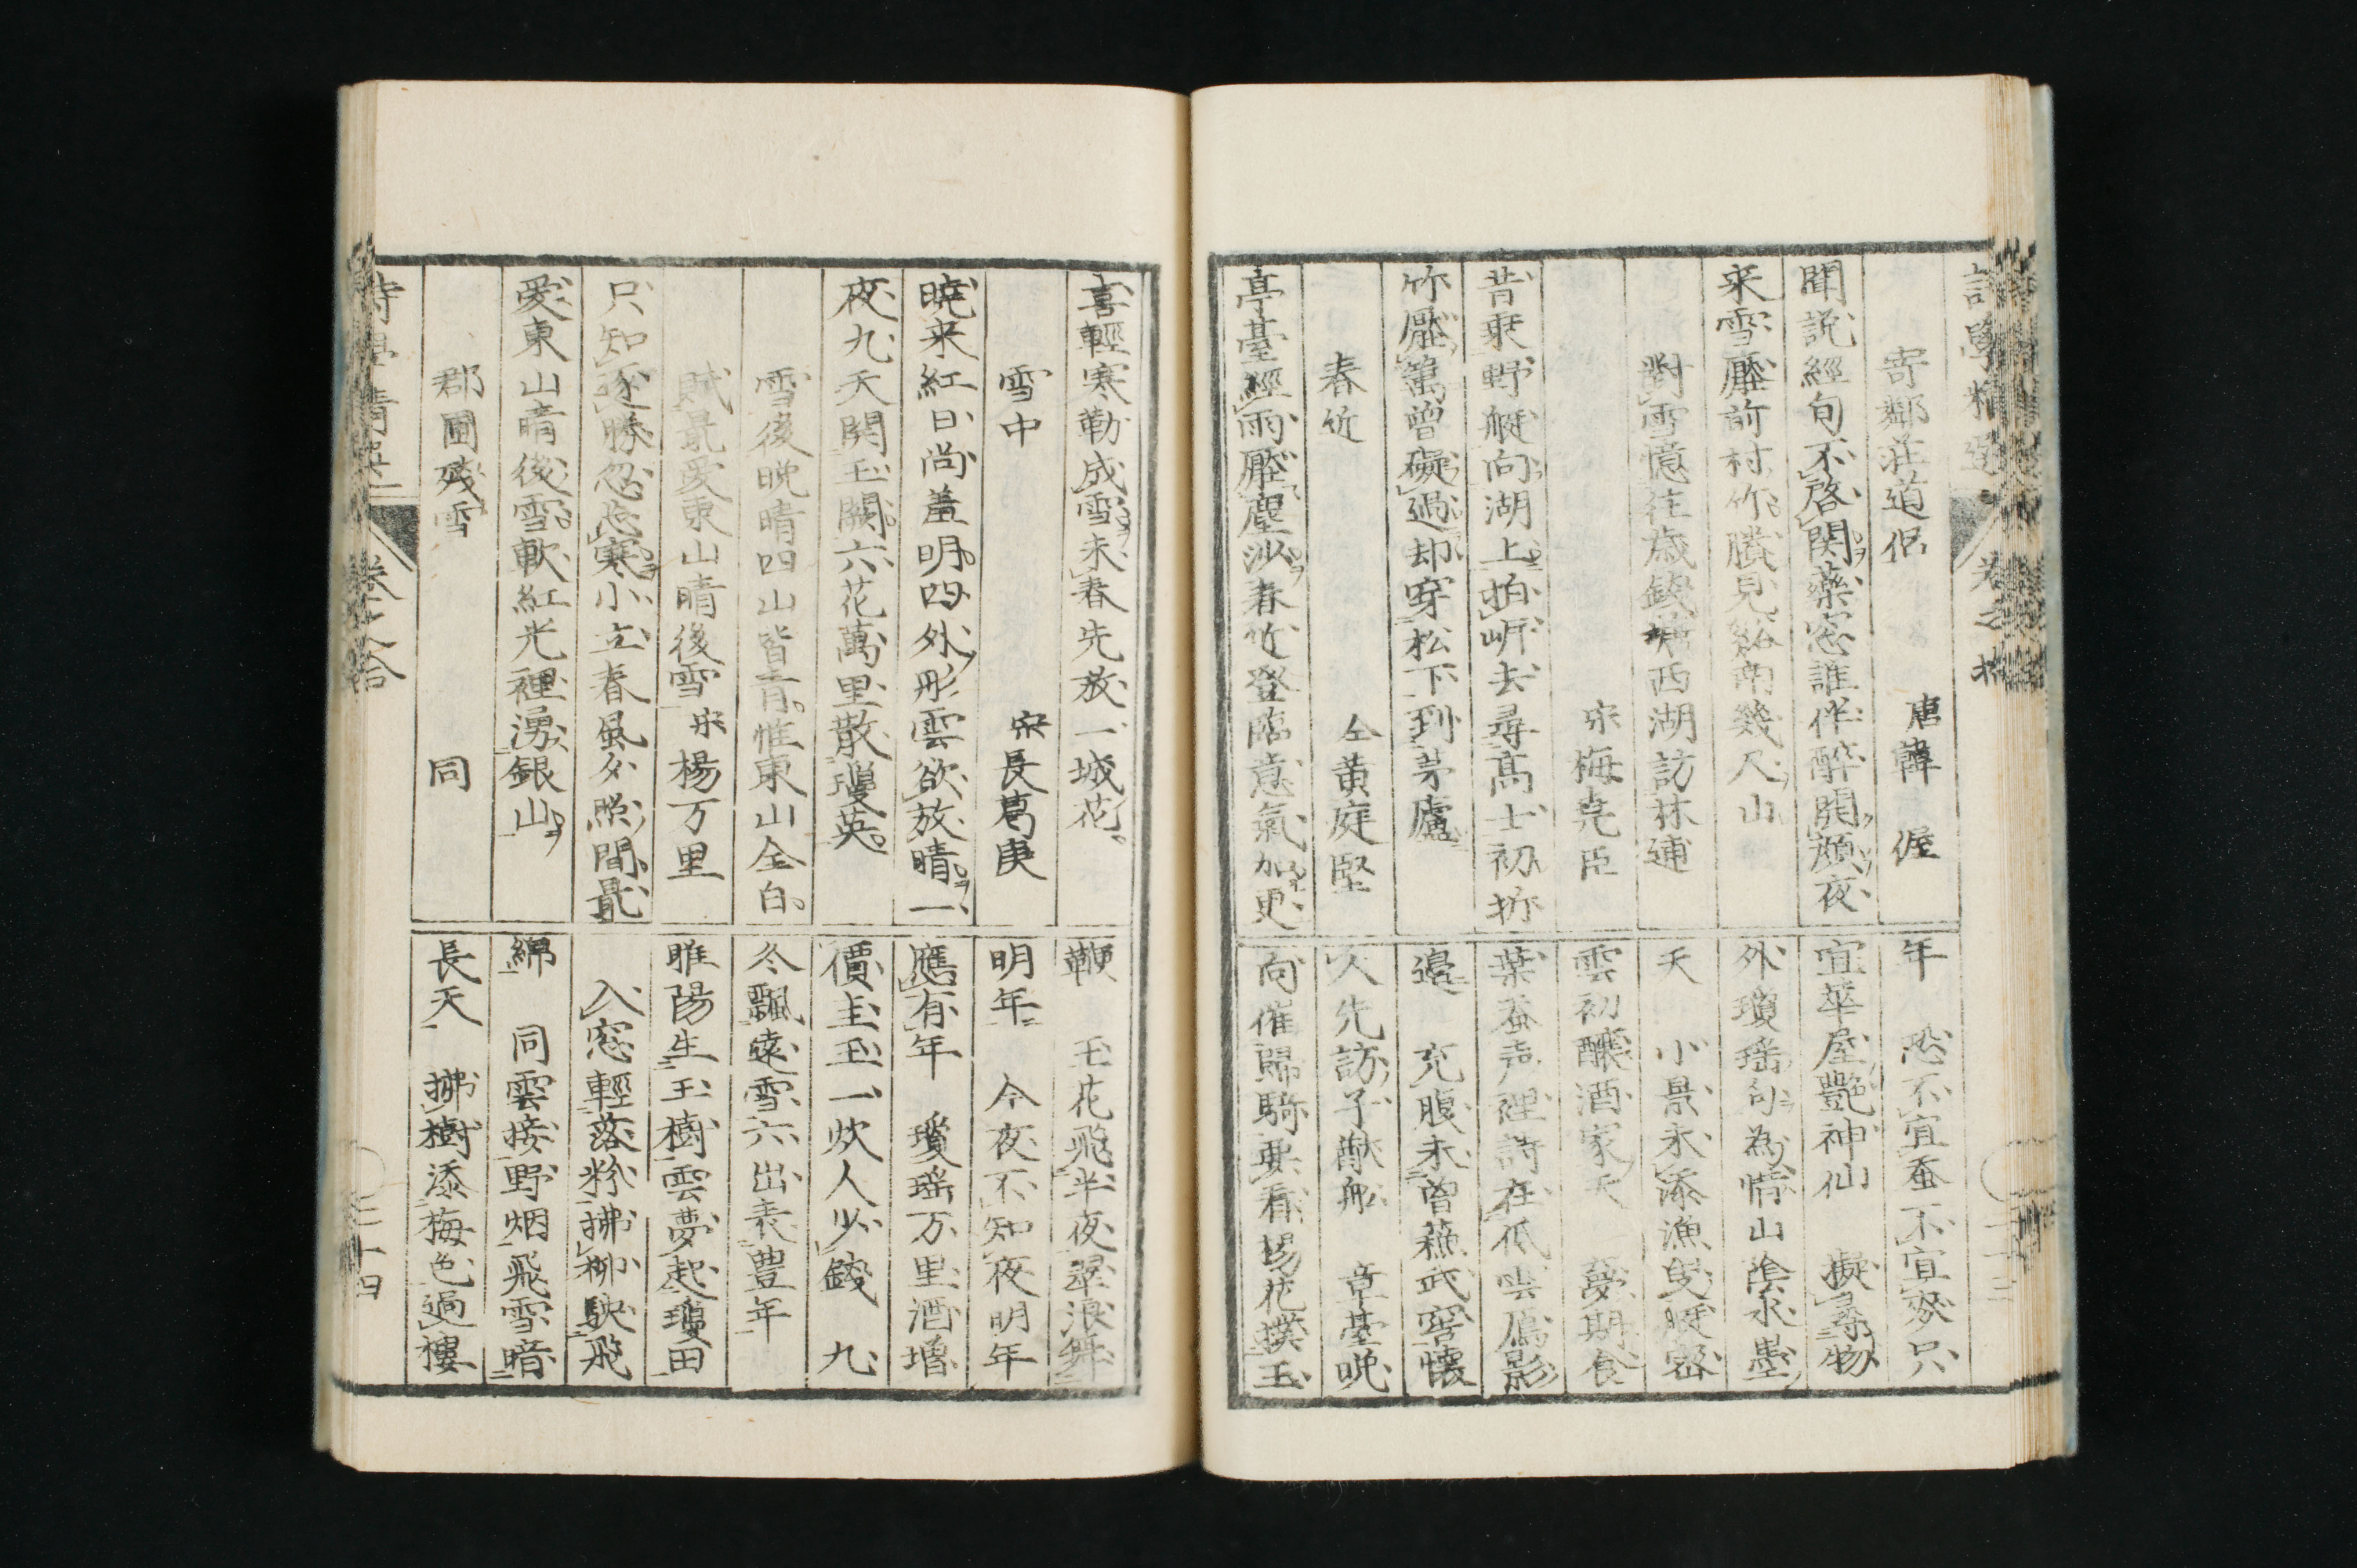 寄鄰莊道侶　唐韓偓
聞説經旬不啓関藥窓誰伴醉開顔夜
来雪壓前村竹賸見谿南幾尺山
對雪憶往歳錢塘西湖訪林逋
宋梅尭臣
昔乗野艇向湖上拍岍去尋髙士初折
竹壓籬曾礙過却穿松下到茅廬
春竹　仝黄庭堅
亭臺經雨壓塵沙春竹登臨意氣加更
年　恐不宜蚕不宜麥只
宜華屋艶神仙　擬尋物
外瓊瑶句為情山陰水墨
天　小景永添漁叟艇密
雲初釀酒家天　夢期食
葉蚕声裡詩在低雲鴈影
邉　充腹未曾蘓武窖懐
人先訪子猷舩　章臺晩
向催歸騎要看楊花撲玉
喜輕寒勒成雪未春先放一城花
雪中　宋長葛庚
暁来紅日尚羞明四外彤雲欲放晴一
夜九天開玉闕六花萬里散瓊英
雪後晩晴四山皆青惟東山全白
賦最愛東山晴後雪　宋楊万里
只知逐勝忽忘寒小立春風夕照間最
愛東山晴後雪軟紅光裡湧銀山
郡圃残雪　同
鞭　玉花飛半夜翠浪舞
明年　今夜不知夜明年
應有年　瓊瑶万里酒増
價圭玉一炊人少錢　九
冬飄遠雪六出表豊年
睢陽生玉樹雲夢起瓊田
入窓輕落粉拂柳駃飛
綿　同雲接野烟飛雪暗
長天　拂樹添梅色過樓
三十四